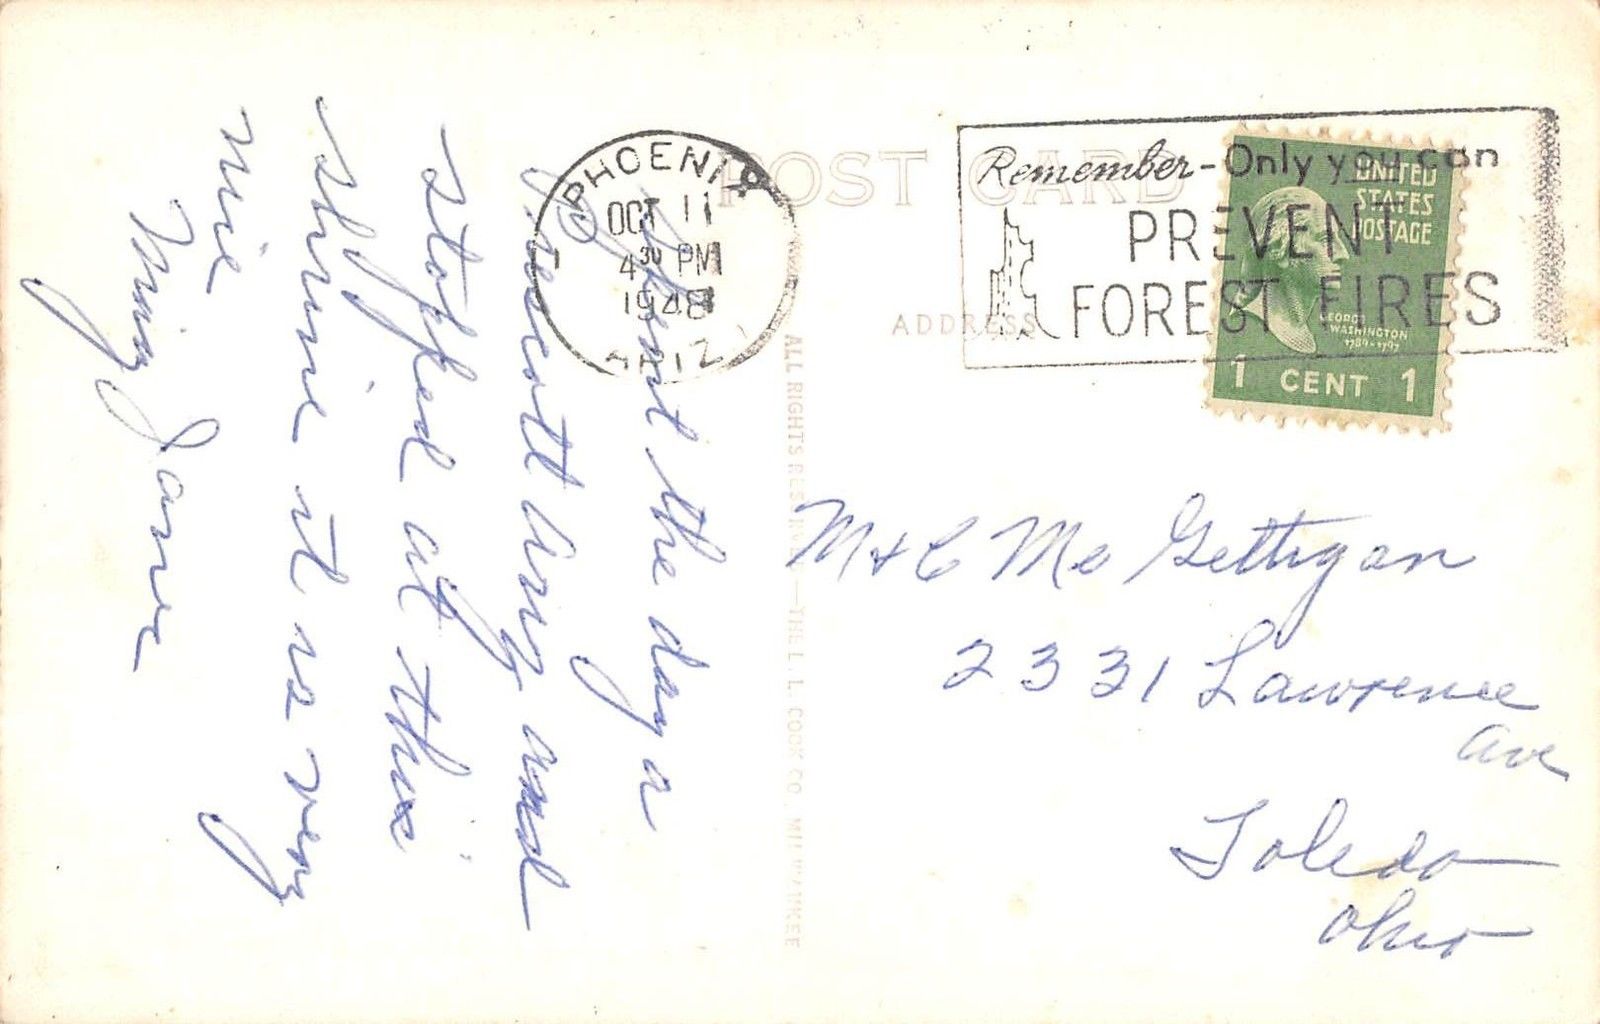 POST CARD
ADDRESS
PHOENIX
OCT 11
4 30 PM
1948
ARIZ
Remember - Only you can
PREVENT
FOREST FIRES
UNITED
STATES
POSTAGE
GEORGE
WASHINGTON
1789-1797
1 CENT 1
Spent the day a
Prescott Ariz and
stopped at this
shrine it is very
nice
Jane
M + C Mc Gettigan
2331 Lawrence
Ave
Toledo
Ohio
ALL RIGHTS RESERVED—THE L. L. COOK CO. MILWAUKEE